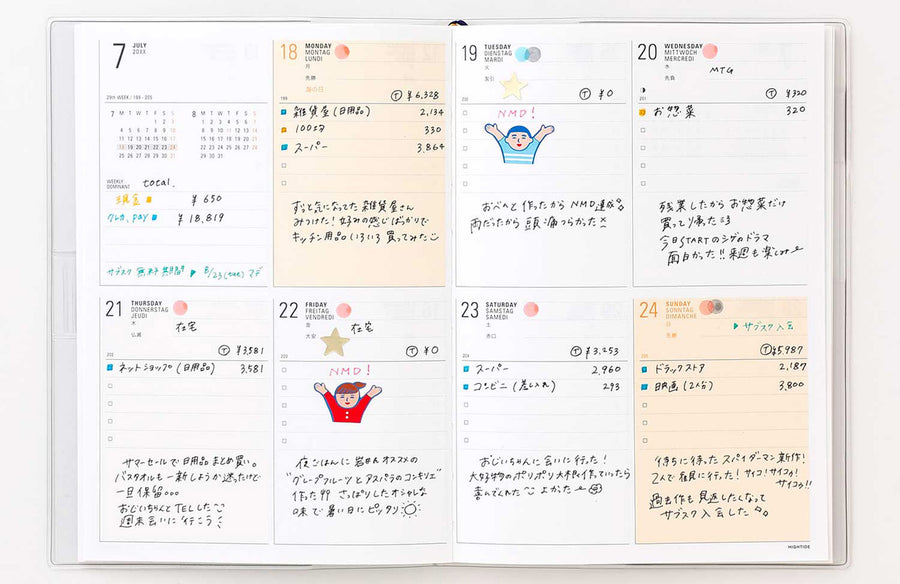 7 JULY
20XX
29th WEEK / 199 - 205
7 M T W T F S S
1 2 3
4 5 6 7 8 9 10
11 12 13 14 15 16 17
18 19 20 21 22 23 24
25 26 27 28 29 30 31
8 M T W T F S S
1 2 3 4 5 6 7
8 9 10 11 12 13 14
15 16 17 18 19 20 21
22 23 24 25 26 27 28
29 30 31
WEEKLY
DOMINANT
total.
現金 ¥650
クレカ, pay ¥18,819
サブスク 無料期間 ▶ 8/23(tue)マデ
18 MONDAY
MONTAG
LUNDI
月
先勝
海の日
199
Ⓣ ¥6,328
雑貨屋(日用品) 2,134
100均 330
スーパー 3,864
ずっと気になってた雑貨屋さん
みつけた!好みの感じばっかりで
キッチン用品いろいろ買ってみた
19 TUESDAY
DIENSTAG
MARDI
火
友引
200
Ⓣ ¥0
NMD!
おべんと作ったからNMD達成
雨だったから頭痛つらかった
20 WEDNESDAY
MITTWOCH
MERCREDI
水
先負
201
MTG
Ⓣ ¥320
お惣菜 320
残業したからお惣菜だけ
買って帰った
今日STARTのシゲのドラマ
面白かった!!来週も楽しみ
21 THURSDAY
DONNERSTAG
JEUDI
木
仏滅
202
在宅
Ⓣ ¥3,581
ネットショップ(日用品) 3,581
サマーセールで日用品まとめ買い。
バスタオルも一新しようか迷ったけど
一旦保留。。。
おじいちゃんとTELした
週末会いに行こう
22 FRIDAY
FREITAG
VENDREDI
金
大安
203
在宅
Ⓣ ¥0
NMD!
夜ごはんに岩井オススメの
"グレープフルーツとアスパラのコンキリエ"
作った さっぱりしたオシャレな
味で暑い日にピッタリ
23 SATURDAY
SAMSTAG
SAMEDI
土
赤口
204
Ⓣ ¥3,253
スーパー 2,960
コンビニ(差し入れ) 293
おじいちゃんに会いに行った!
大好物のポリポリ大根作っていったら
喜んでくれた よかった
24 SUNDAY
SONNTAG
DIMANCHE
日
先勝
205
▶ サブスク入会
Ⓣ ¥5,987
ドラッグストア 2,187
映画(2人分) 3,800
待ちに待ったスパイダーマン新作!
2人で観に行った!サイコ!サイコゥ!
サイコゥ!!
過去作も見返したくなって
サブスク入会した
HIGHTIDE